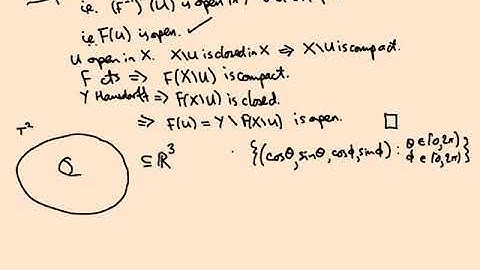 i.e. (F⁻¹)⁻¹(U) is open in Y
i.e. F(U) is open. ✓
U open in X. X\U is closed in X ⇒ X\U is compact.
F cts ⇒ F(X\U) is compact.
Y Hausdorff ⇒ F(X\U) is closed.
⇒ F(U) = Y \ F(X\U) is open. □
T² ⊆ ℝ³ {(cosθ, sinθ, cosϕ, sinϕ) : θ ∈ [0, 2π) ϕ ∈ [0, 2π)}